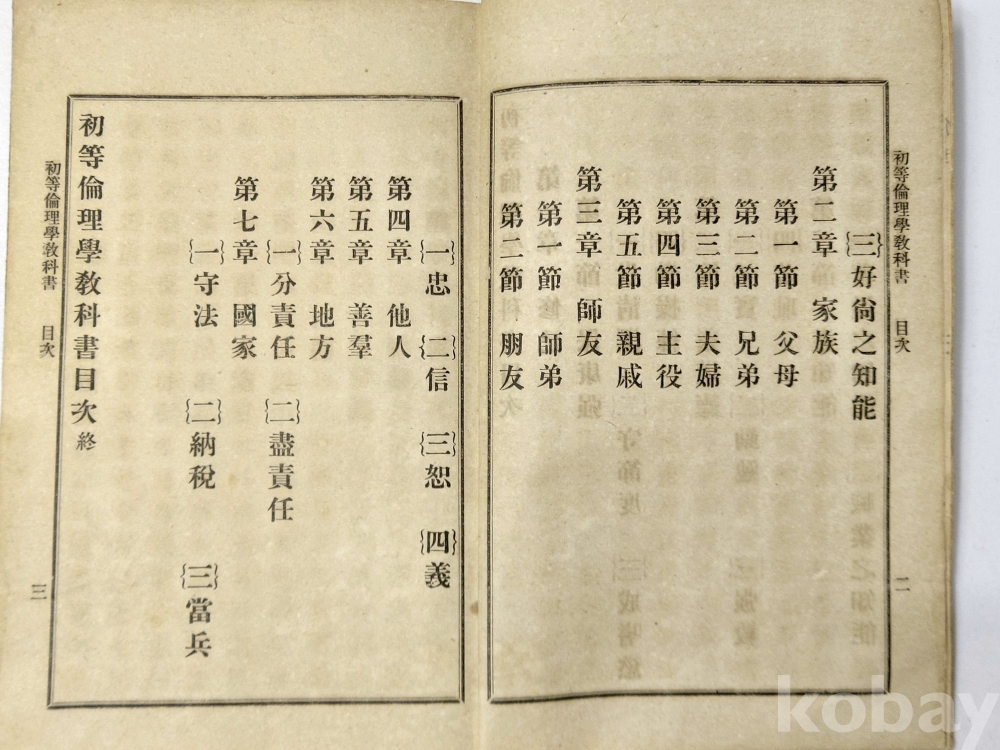 初等倫理學教科書 目次 二
{三}好尙之知能
第二章 家族
第一節 父母
第二節 兄弟
第三節 夫婦
第四節 主役
第五節 親戚
第三章 師友
第一節 師弟
第二節 朋友
{一}忠 {二}信 {三}恕 {四}義
第四章 他人
第五章 善羣
第六章 地方
{一}分責任 {二}盡責任
第七章 國家
{一}守法 {二}納稅 {三}當兵
初等倫理學教科書目次 終
初等倫理學教科書 目次 三
kobay